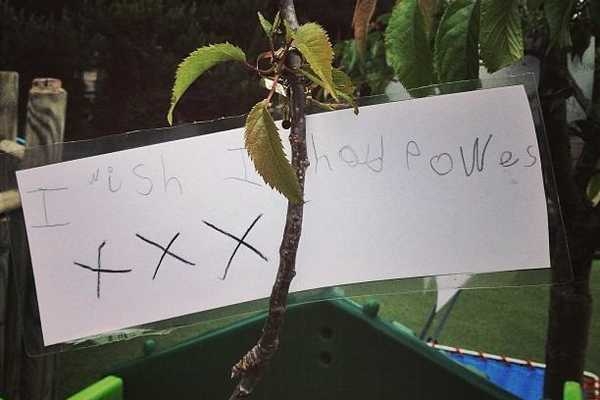 I wish I had powes
xxx